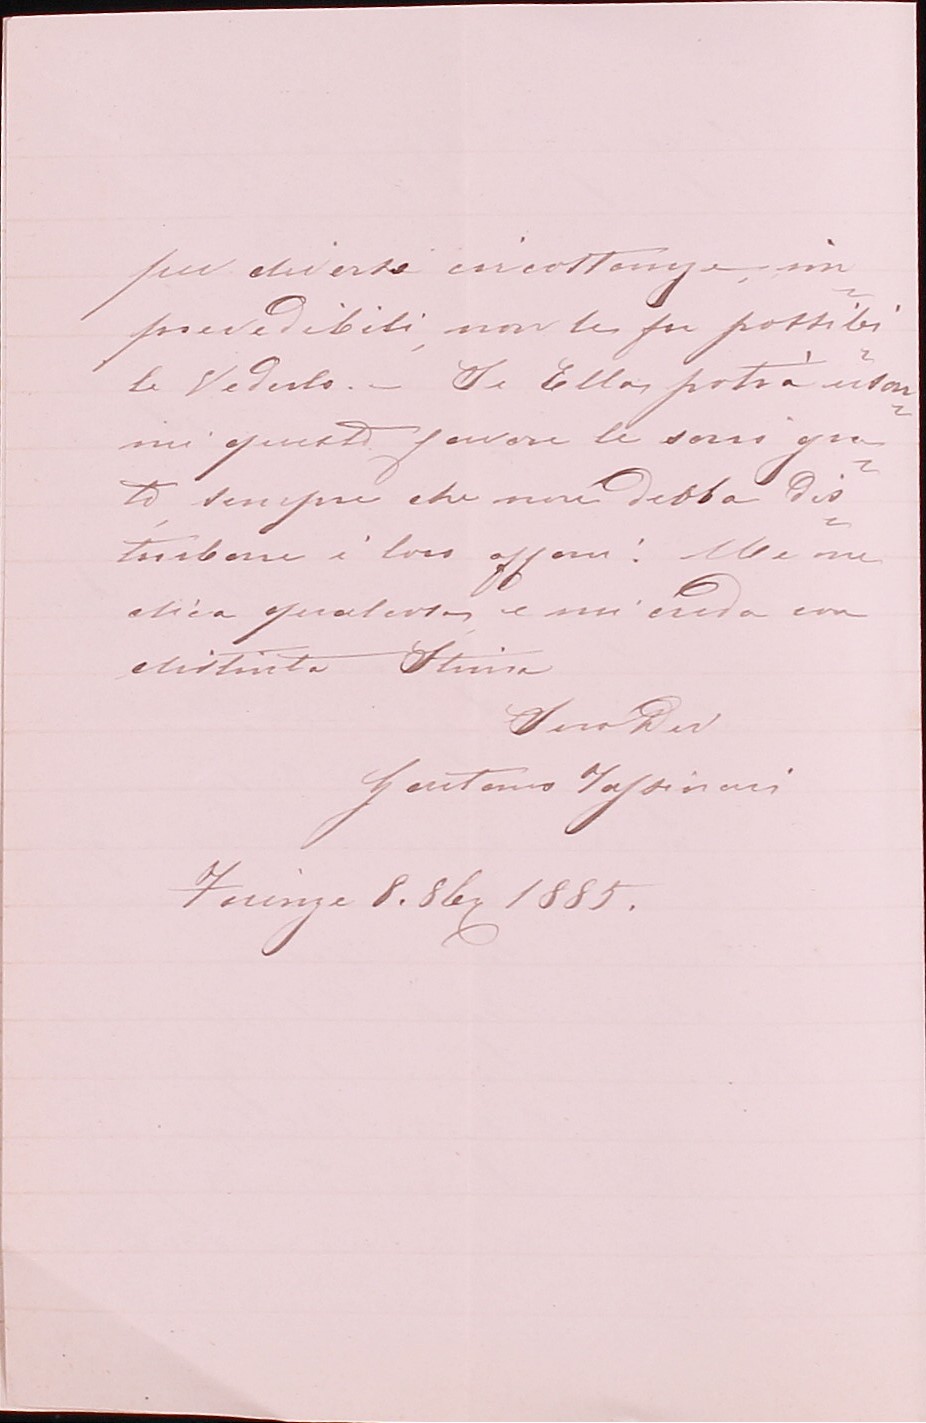 per diverse circostanze, im
prevedibili, non le fu possibi
le Vederlo. — Se Ella potrà usar
mi questo favore le sarò gra
to, sempre che non debba dis
turbare i loro affari. Me ne
dica qualcosa, e mi creda con
distinta Stima
Suo Dev
Gaetano Tassinari
Firenze 8. 8br 1885.